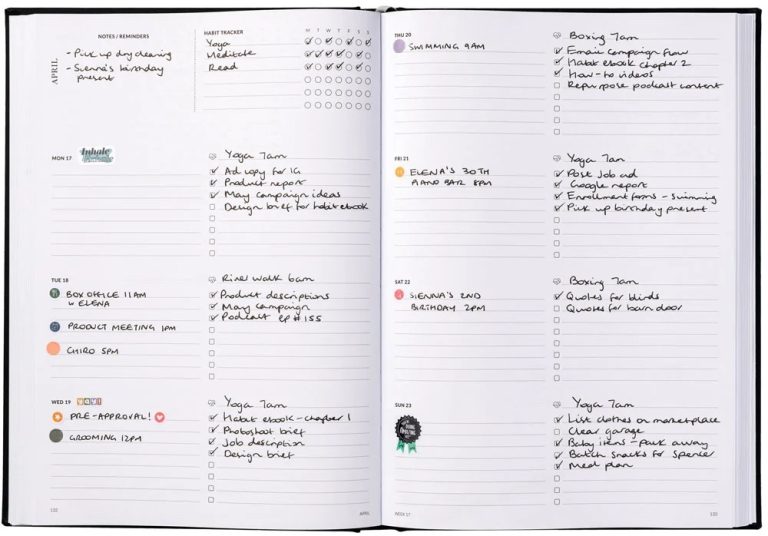 NOTES / REMINDERS
APRIL
- Pick up dry cleaning
- Sienna's birthday
present
HABIT TRACKER
M T W T F S S
Yoga
Meditate
Read
MON 17
Inhale
Yoga 7am
Ad copy for IG
Product report
May campaign ideas
Design brief for habit ebook
TUE 18
BOX OFFICE 11AM
W ELENA
PRODUCT MEETING 1PM
CHIRO 5PM
River walk 6am
Product descriptions
May campaign
Podcast ep #155
WED 19
YAY!
PRE-APPROVAL!
GROOMING 12PM
Yoga 7am
Habit ebook - chapter 1
Photoshoot brief
Job description
Design brief
132
APRIL
THU 20
SWIMMING 9AM
Boxing 7am
Email campaign flow
Habit ebook chapter 2
How-to videos
Repurpose podcast content
FRI 21
ELENA'S 30TH
BAR 8PM
Yoga 7am
Pose job ad
Google report
Enrollment forms - Swimming
Pick up birthday present
SAT 22
SIENNA'S 2ND
BIRTHDAY 2PM
Boxing 7am
Quotes for blinds
Quotes for barn door
SUN 23
Yoga 7am
List clothes on marketplace
Clear garage
Baby items - pack away
Batch snacks for Spencer
Meal plan
WEEK 17
133